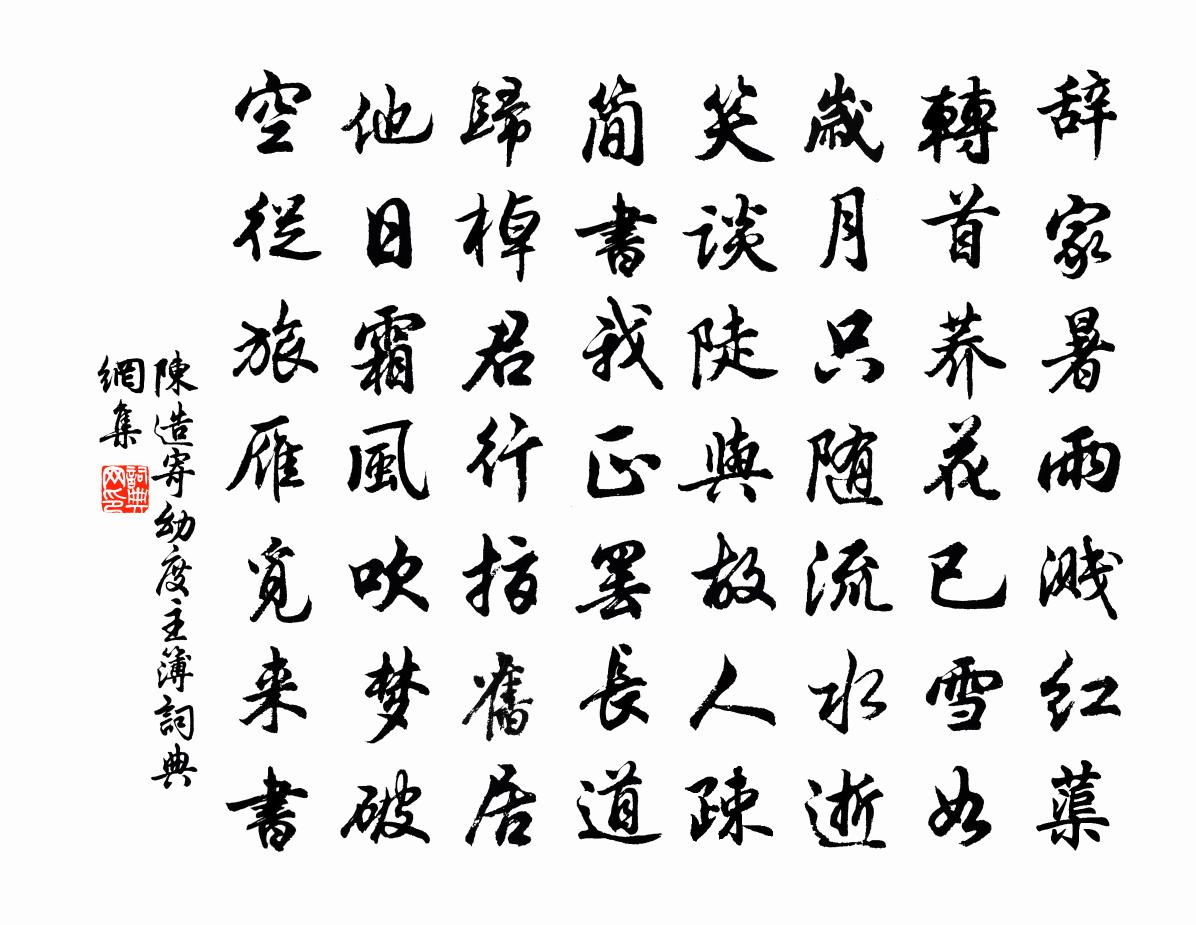 辞家暑雨濺红蕖
轉首荞花已雪如
歲月只随流水逝
笑谈陡與故人疎
简書我正罢長道
歸棹君行指舊居
他日霜風吹梦破
空從旅雁覓来書
陳造寄幼度主簿詞典
網集
詞典网印